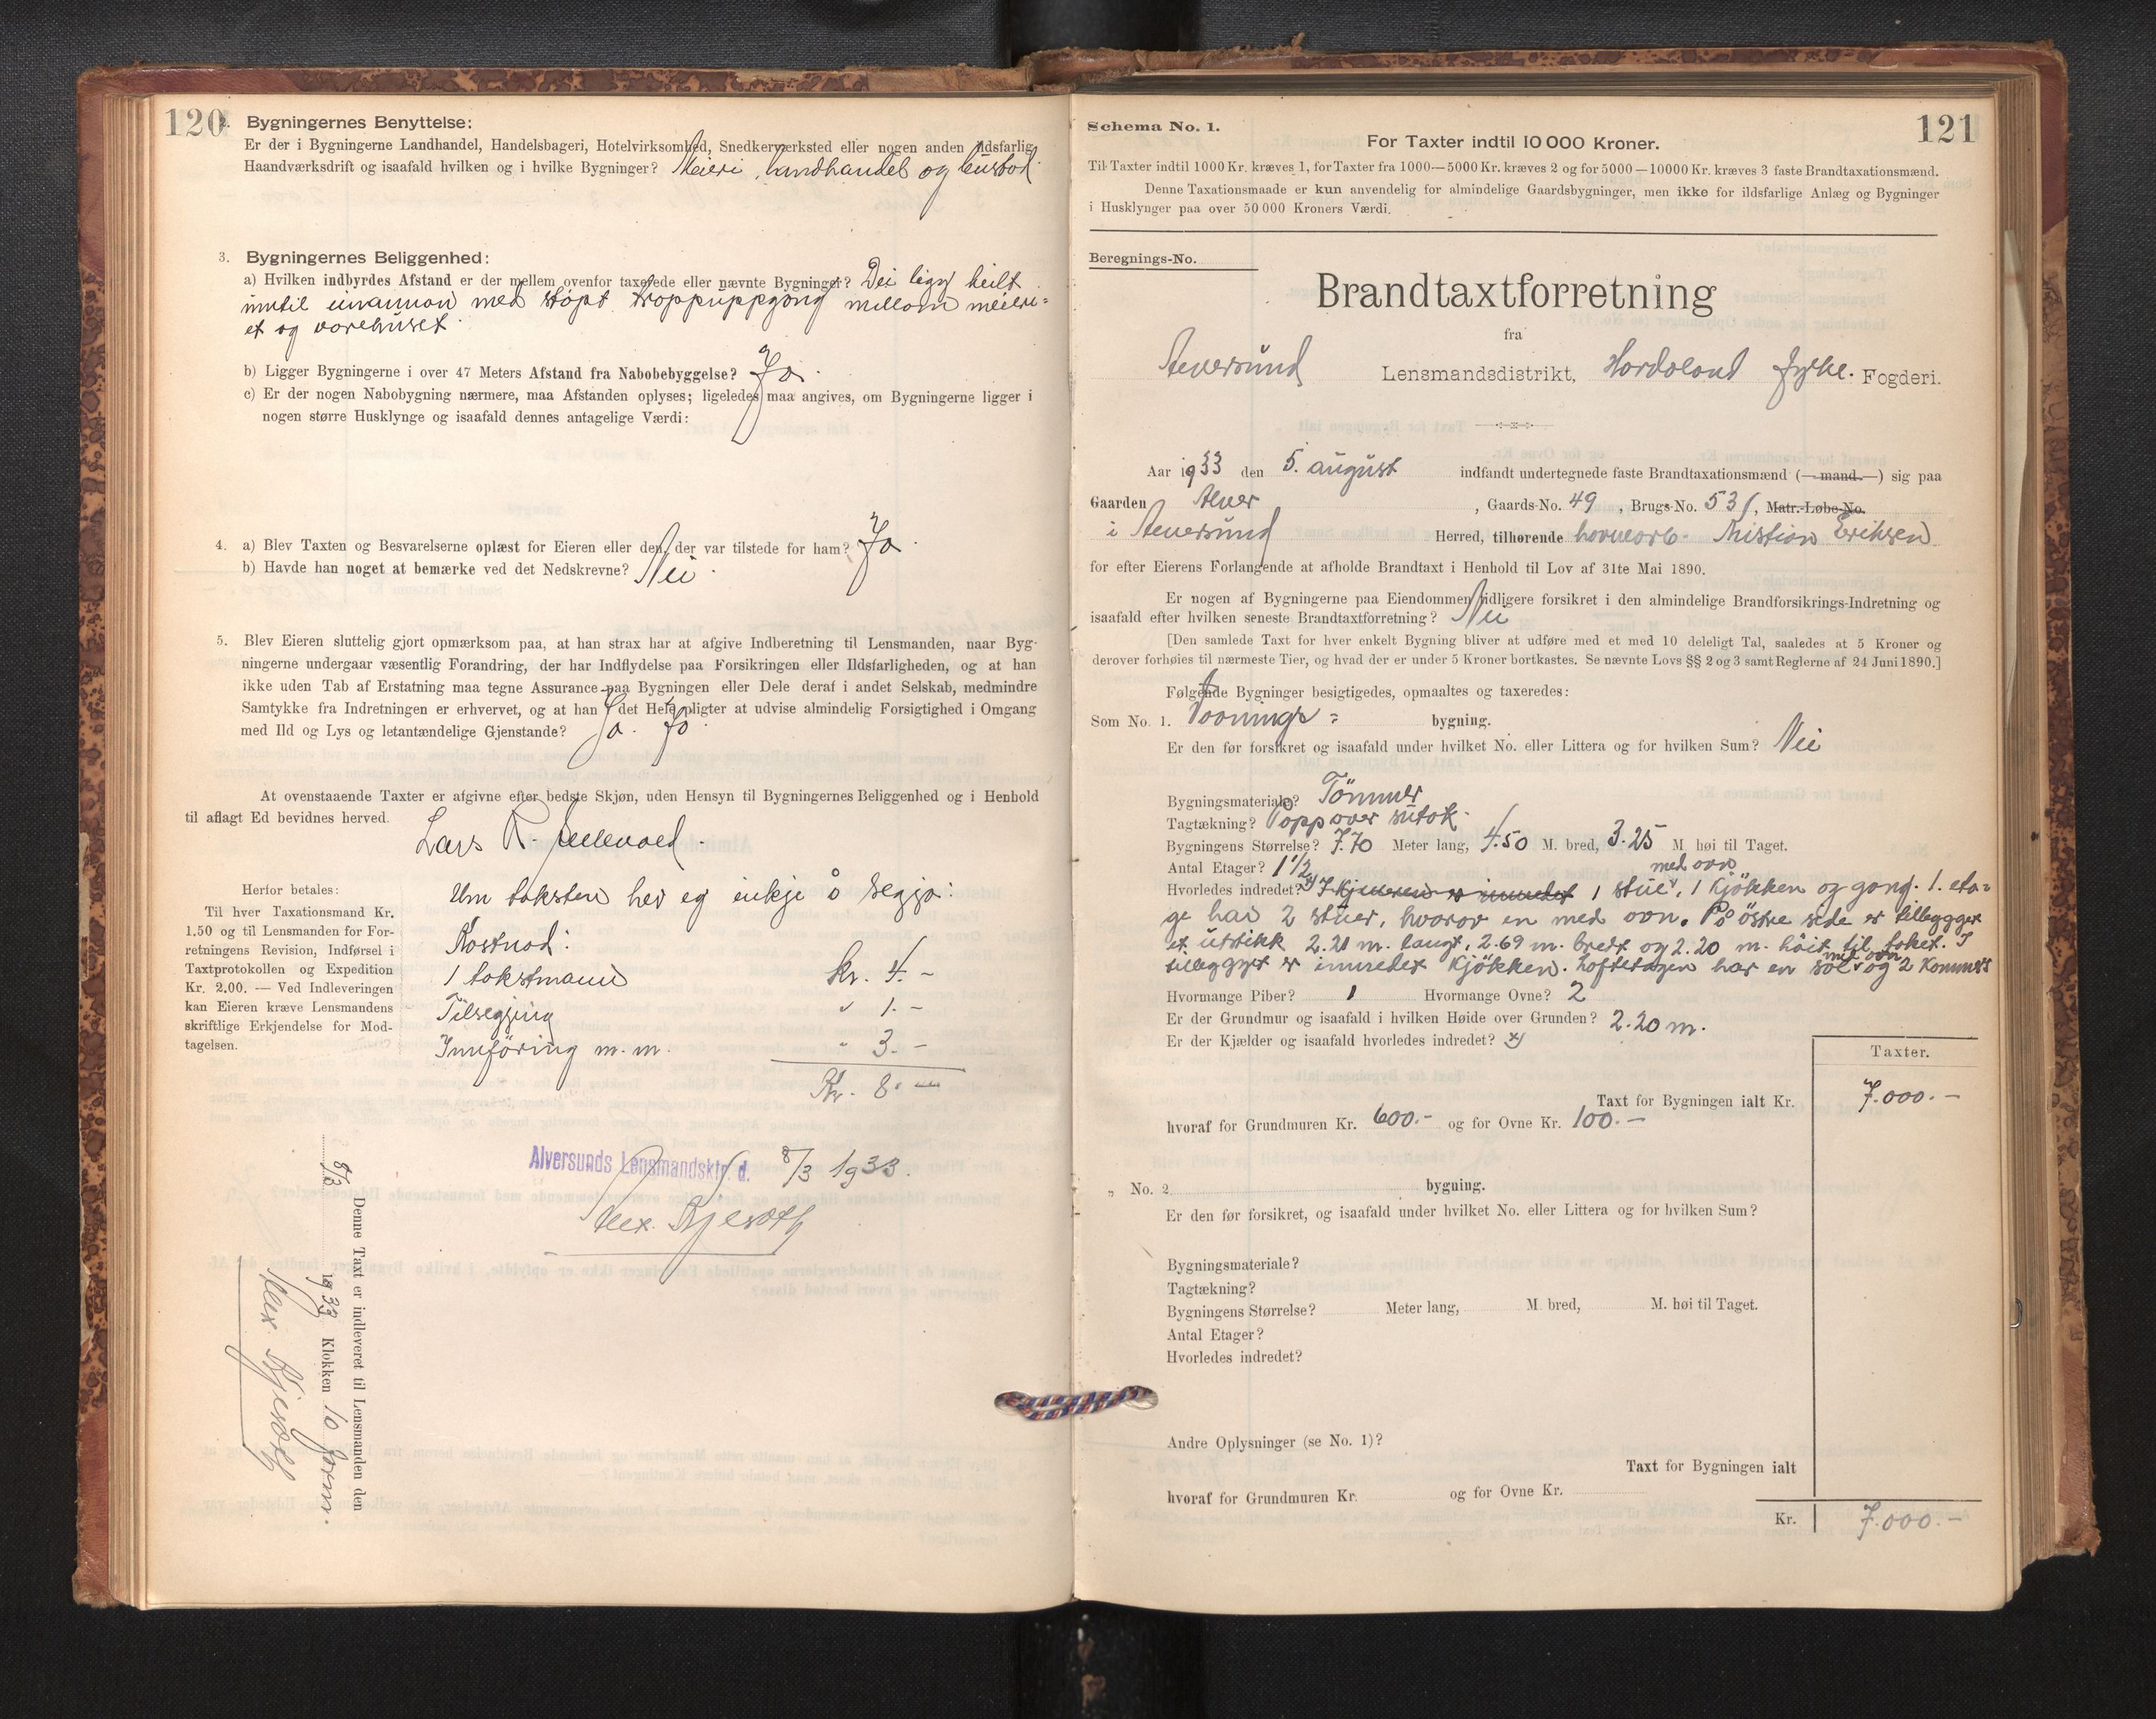 120
2. Bygningernes Benyttelse:
Er der i Bygningerne Landhandel, Handelsbageri, Hotelvirksomhed, Snedkerværksted eller nogen anden ildsfarlig
Haandværksdrift og isaafald hvilken og i hvilke Bygninger? Meieri, landhandel og bustad.
3. Bygningernes Beliggenhed:
a) Hvilken indbyrdes Afstand er der mellem ovenfor taxerede eller nævnte Bygninger? Dei ligg heilt
inntil einannan med støpt troppuppgong millom meieri=
et og varehuset.
b) Ligger Bygningerne i over 47 Meters Afstand fra Nabobebyggelse? Ja.
c) Er der nogen Nabobygning nærmere, maa Afstanden oplyses; ligeledes maa angives, om Bygningerne ligger i
nogen større Husklynge og isaafald dennes antagelige Værdi:
4. a) Blev Taxten og Besvarelserne oplæst for Eieren eller den, der var tilstede for ham? Ja.
b) Havde han noget at bemærke ved det Nedskrevne? Nei.
5. Blev Eieren sluttelig gjort opmærksom paa, at han strax har at afgive Indberetning til Lensmanden, naar Byg-
ningerne undergaar væsentlig Forandring, der har Indflydelse paa Forsikringen eller Ildsfarligheden, og at han
ikke uden Tab af Erstatning maa tegne Assurance paa Bygningen eller Dele deraf i andet Selskab, medmindre
Samtykke fra Indretningen er erhvervet, og at han i det Hele pligter at udvise almindelig Forsigtighed i Omgang
med Ild og Lys og letantændelige Gjenstande? Ja. Ja.
At ovenstaaende Taxter er afgivne efter bedste Skjøn, uden Hensyn til Bygningernes Beliggenhed og i Henhold
til aflagt Ed bevidnes herved.
Lars R.
Herfor betales:
Til hver Taxationsmand Kr.
1.50 og til Lensmanden for For-
retningens Revision, Indførsel i
Taxtprotokollen og Expedition
Kr. 2.00. — Ved Indleveringen
kan Eieren kræve Lensmandens
skriftlige Erkjendelse for Mod-
tagelsen.
Um taksten hev eg inkje å segja:
Kostnad:
1 takstmann Kr. 4.-
Tilsegjing " 1.-
Innføring m.m. " 3.-
Kr. 8.-
Alversunds Lensmandsktr. d. 8/3 1933.
Denne Taxt er indleveret til Lensmanden den
8/3 1933 Klokken 10 form.
121
Schema No. 1.
For Taxter indtil 10 000 Kroner.
Til Taxter indtil 1000 Kr. kræves 1, for Taxter fra 1000—5000 Kr. kræves 2 og for 5000—10000 Kr. kræves 3 faste Brandtaxationsmænd.
Denne Taxationsmaade er kun anvendelig for almindelige Gaardsbygninger, men ikke for ildsfarlige Anlæg og Bygninger
i Husklynger paa over 50 000 Kroners Værdi.
Beregnings-No.
Brandtaxtforretning
fra
Alversund Lensmandsdistrikt, Hordaland fylke. Fogderi.
Aar 1933 den 5. august indfandt undertegnede faste Brandtaxationsmænd (mand) sig paa
Gaarden Alver, Gaards-No. 49, Brugs-No. 531, Matr.-Løbe-No.
i Alversund Herred, tilhørende havnearb. Kristian Eriksen
for efter Eierens Forlangende at afholde Brandtaxt i Henhold til Lov af 31te Mai 1890.
Er nogen af Bygningerne paa Eiendommen tidligere forsikret i den almindelige Brandforsikrings-Indretning og
isaafald efter hvilken seneste Brandtaxtforretning? Nei
[Den samlede Taxt for hver enkelt Bygning bliver at udføre med et med 10 deleligt Tal, saaledes at 5 Kroner og
derover forhøies til nærmeste Tier, og hvad der er under 5 Kroner bortkastes. Se nævnte Lovs §§ 2 og 3 samt Reglerne af 24 Juni 1890.]
Følgende Bygninger besigtigedes, opmaaltes og taxeredes:
Som No. 1. Vaanings= bygning.
Er den før forsikret og isaafald under hvilket No. eller Littera og for hvilken Sum? Nei
Bygningsmateriale? Tömmer
Tagtækning? Papp over sutak.
Bygningens Størrelse? 7.70 Meter lang, 4.50 M. bred, 3.25 M. høi til Taget.
Antal Etager? 1 1/2
Hvorledes indredet? x) I kjelleren er innredet 1 stue med ovn, 1 kjökken og gang. 1. eta=
ge har 2 stuer, hvorav en med ovn. På östre side er tillegget
et utstikk 2.21 m. langt, 2.69 m. bredt og 2.20 m. höit til taket. I
tillegget er innredet kjökken. Loftetagen har en sal med ovn og 2 kammers
Hvormange Piber? 1 Hvormange Ovne? 2
Er der Grundmur og isaafald i hvilken Høide over Grunden? 2.20 m.
Er der Kjælder og isaafald hvorledes indredet? x)
Taxter.
Taxt for Bygningen ialt Kr. 7.000.-
hvoraf for Grundmuren Kr. 600.- og for Ovne Kr. 100.-
„ No. 2 bygning.
Er den før forsikret, og isaafald under hvilket No. eller Littera og for hvilken Sum?
Bygningsmateriale?
Tagtækning?
Bygningens Størrelse? Meter lang, M. bred, M. høi til Taget.
Antal Etager?
Hvorledes indredet?
Andre Oplysninger (se No. 1)?
Taxt for Bygningen ialt
hvoraf for Grundmuren Kr. og for Ovne Kr.
Kr. 7.000.-